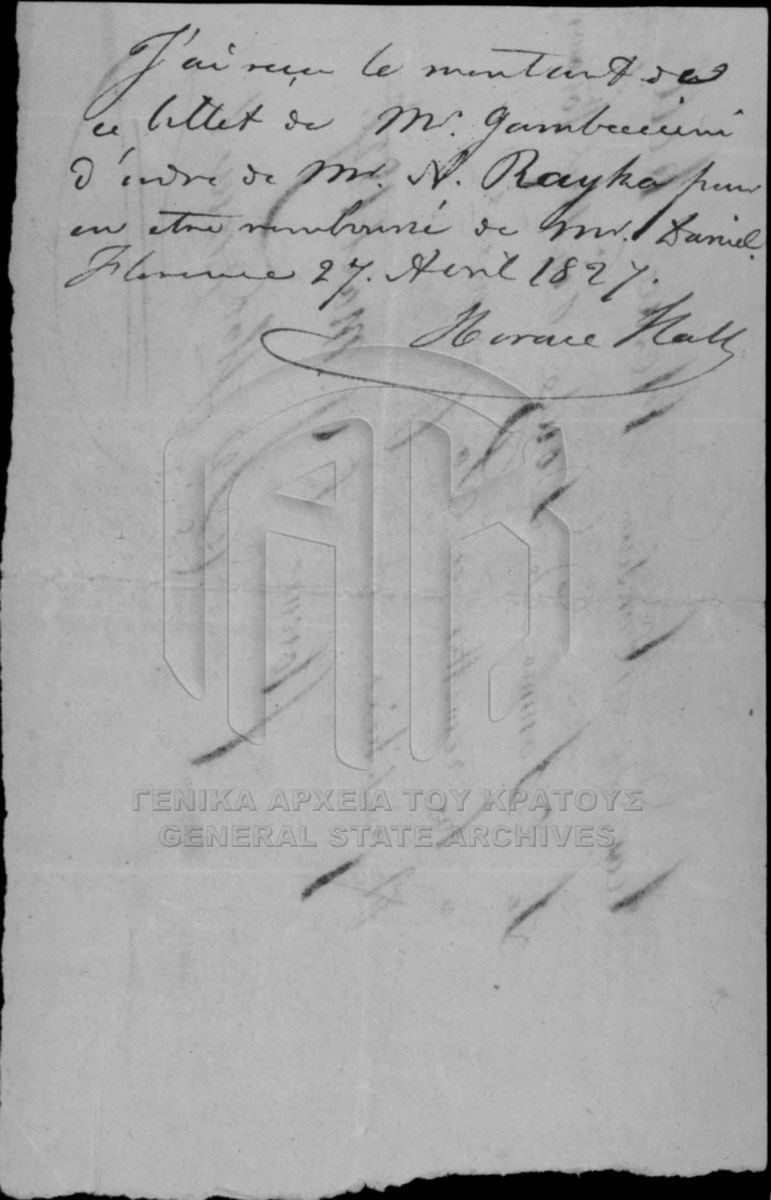 J'ai reçu le montant de
ce billet de Mr. Gambaccini
d'ordre de Mr. A. Rayko pour
en etre remboursé de Mr. Daniel.
Florence 27. Avril 1827.
Horace Hall
ΓΕΝΙΚΑ ΑΡΧΕΙΑ ΤΟΥ ΚΡΑΤΟΥΣ
GENERAL STATE ARCHIVES